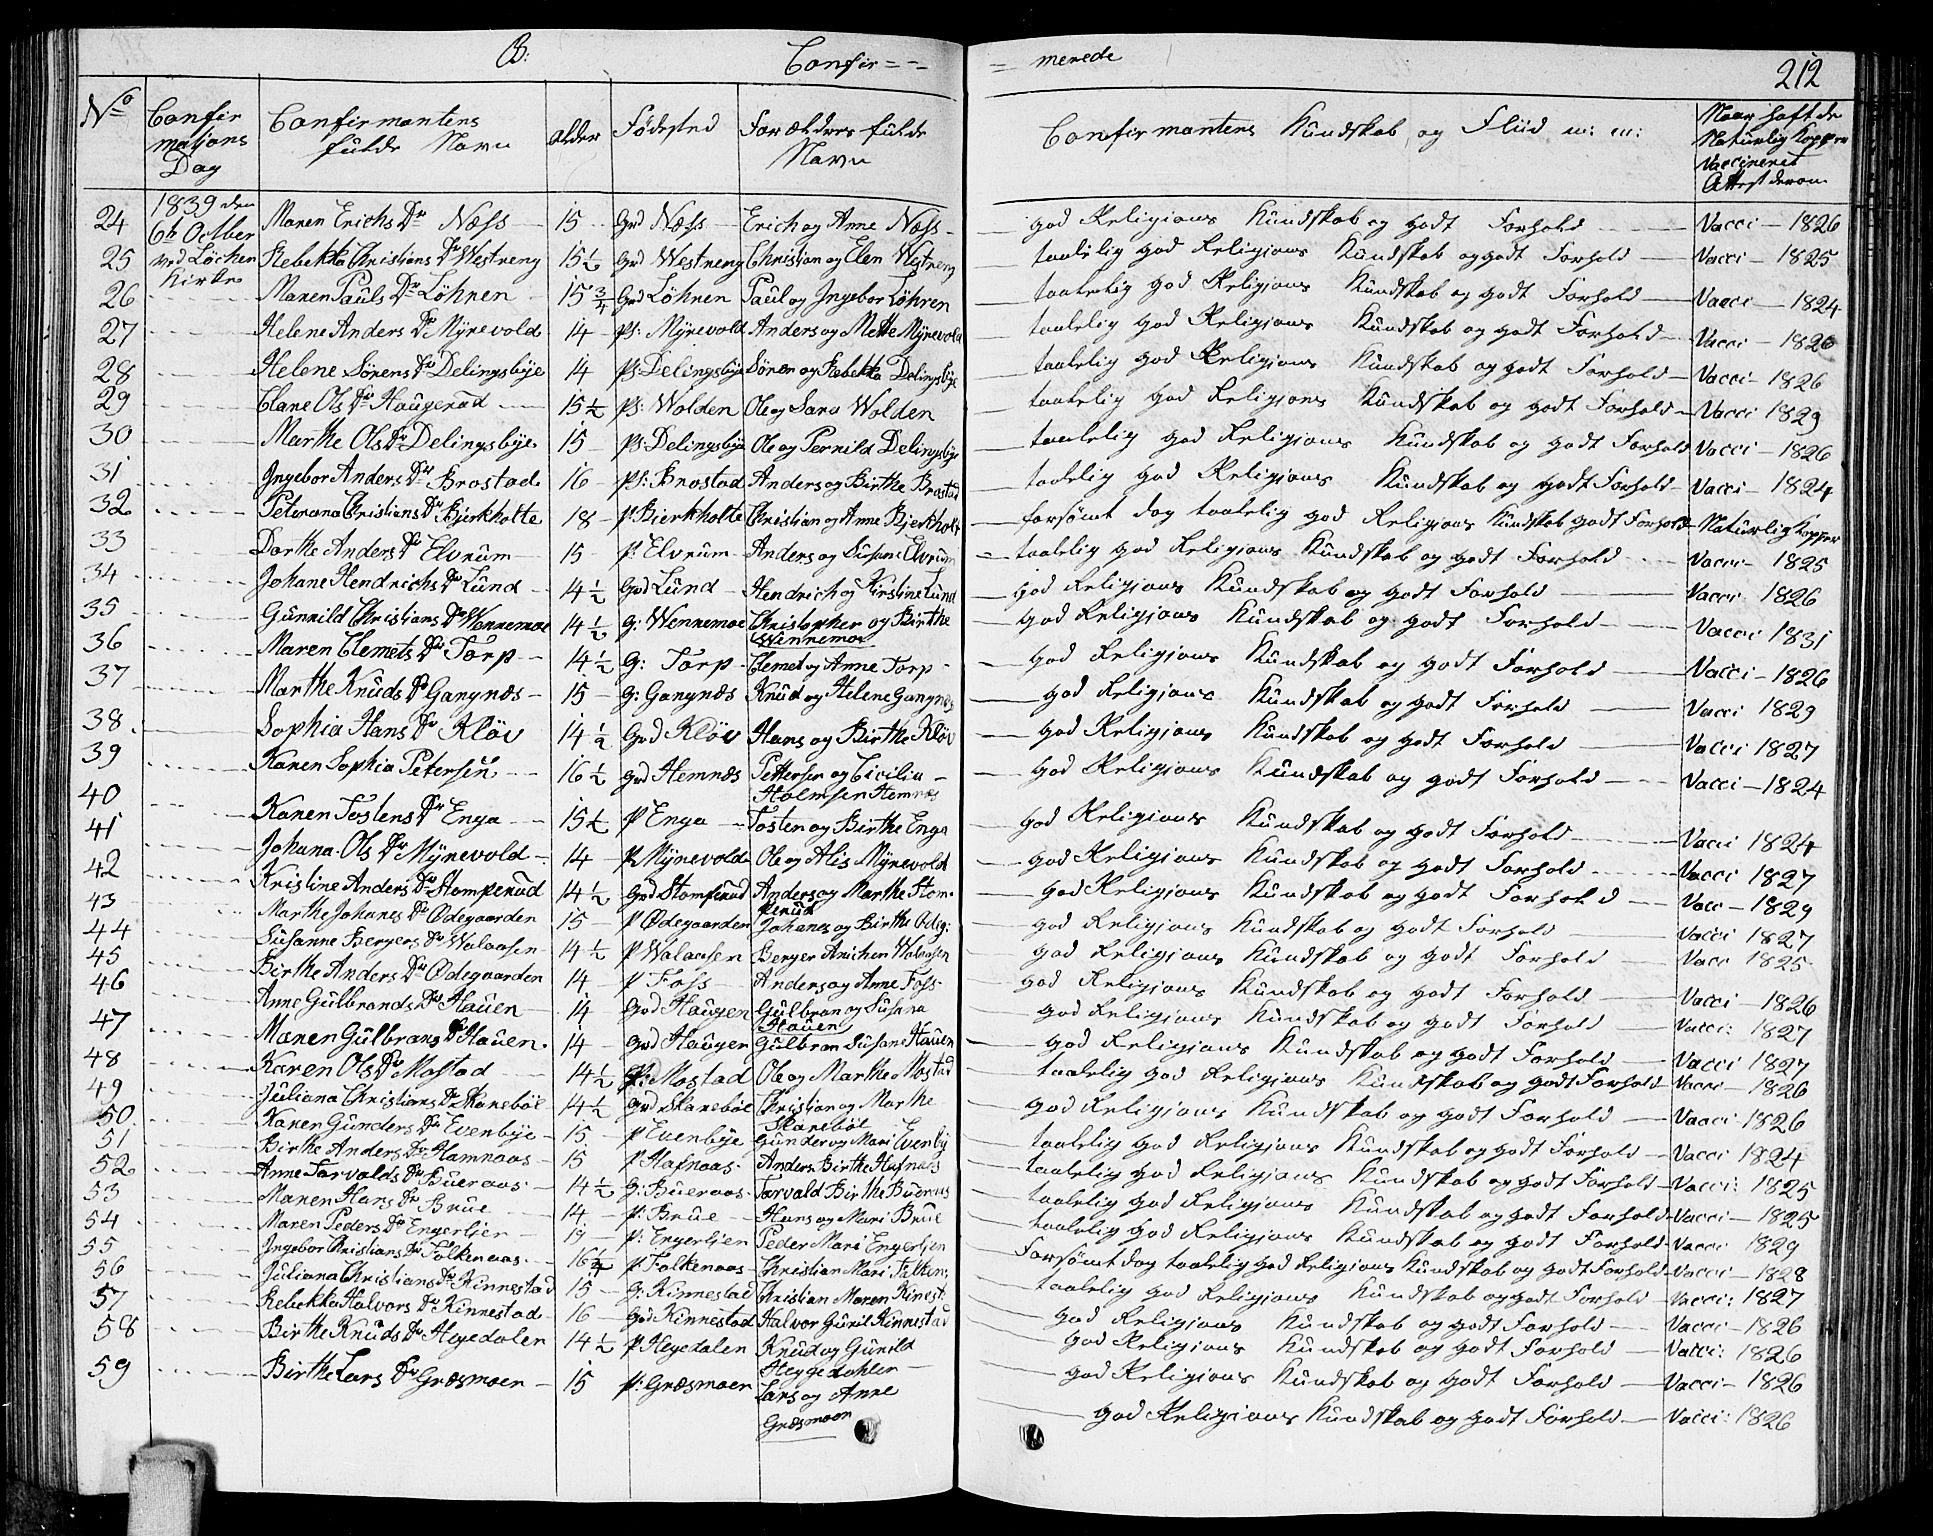 B. Confir= - = merede 212
No Confirmations Dag Confirmantens fulde Navn Alder Födested Forældres fulde Navn Confirmantens Kundskab og Fliid m: m: Naar haft de Naturlig Kopper Vaccineret Attest derom
1839 den 6te Octber ved Löchen Kirke
24 Maren Erichs Dr Næss 15 Grd Næss Erich og Anne Næss god Religions Kundskab og godt Forhold Vacci - 1826
25 Rebekka Christians Dr Westreng 15 1/2 Grd Westreng Christian og Elen Westreng taalelig god Religions Kundskab og godt Forhold Vacci - 1825
26 Maren Pauls Dr Löhren 15 3/4 Grd Löhren Paul og Ingebor Löhren taalelig god Religions Kundskab og godt Forhold Vacci - 1824
27 Helene Anders Dr Myrevold 14 Ps: Myrevold Anders og Mette Myrevold taalelig god Religions Kundskab og godt Forhold Vacci - 1826
28 Helene Sörens Dr Delingsbye 14 Ps: Delingsbye Sören og Rebekka Delingsbye taalelig god Religions Kundskab og godt Forhold Vacci - 1826
29 Clane Ols Dr Haugerud 15 1/2 Ps: Wolden Ole og Sara Wolden taalelig god Religions Kundskab og godt Forhold Vacci 1829
30 Marthe Ols Dr Delingsbye 15 Ps: Delingsbye Ole og Pernild Delingsbye taalelig god Religions Kundskab og godt Forhold Vacci - 1826
31 Ingebor Anders Dr Brostad 16 Ps: Brostad Anders og Birthe Brostad taalelig god Religions Kundskab og godt Forhold Vacci - 1824
32 Peterana Christians Dr Bjerkholte 18 P Bierkholte Christian og Anne Bjerkholt forsömt dog taalelig god Religions Kundskab godt Forhold Naturlig Kopper
33 Dorthe Anders Dr Elvrum 15 P: Elvrum Anders og Susan: Elvrum taalelig god Religions Kundskab og godt Forhold Vacci - 1825
34 Johane Hendrichs Dr Lund 14 1/2 Grd Lund Hendrich og Kirstine Lund god Religions Kundskab og godt Forhold Vacci 1826
35 Gunnild Christians Dr Wennemoe 14 1/2 G: Wennemoe Christopher og Birthe Wennemoe god Religions Kundskab og godt Forhold Vacci 1831
36 Maren Clemets Dr Torp 14 1/2 G: Torp Clemet og Anne Torp god Religions Kundskab og godt Forhold Vacci - 1826
37 Marthe Knuds Dr Gangnæs 15 G: Gangnæs Knud og Helene Gangnæs god Religions Kundskab og godt Forhold Vacci 1829
38 Sophia Hans Dr Klöv 14 1/2 Grd Klöv Hans og Birthe Klöv god Religions Kundskab og godt Forhold Vacci 1827
39 Karen Sophia Petersen 16 1/2 Grd Hemnæs Pettersen og Cicilia Holmsen Hemnæs god Religions Kundskab og godt Forhold Vacci - 1824
40 Karen Tostens Dr Enga 15 1/2 P Enga Tosten og Birthe Enga god Religions Kundskab og godt Forhold Vacci 1824
41 Johana Ols Dr Myrevold 14 P. Myrevold Ole og Alis Myrevold god Religions Kundskab og godt Forhold Vacci 1827
42 Kristine Anders Dr Stomperud 14 1/2 Grd Stomperud Anders og Marthe Stomperud god Religions Kundskab og godt Forhold Vacc - 1829
43 Marthe Johanes Dr Ödegaarden 15 P Ödegaarden Johanes og Birthe Ödeg: god Religions Kundskab og godt Forhold Vacci 1827
44 Susanne Bergers Dr Walaasen 14 1/2 P Walaasen Berger Anichen Walaasen god Religions Kundskab og godt Forhold Vacc 1825
45 Birthe Anders Dr Ödegaarden 14 P Foss Anders og Anne Foss god Religions Kundskab og godt Forhold Vacci - 1826
46 Anne Gulbrands Dr Hauen 14 Grd Haugen Gulbran og Susana Hauen god Religions Kundskab og godt Forhold Vacci: 1827
47 Maren Gulbrans Dr Hauen 14 Grd Haugen Gulbran Susane Hauen god Religions Kundskab og godt Forhold Vacci 1827
48 Karen Ols Dr Mostad 14 1/2 P: Mostad Ole og Marthe Mostad taalelig god Religions Kundskab og godt Forhold Vacci - 1826
49 Juliana Christians Dr Skareböl 14 1/2 Grd Skareböl Christian og Marthe Skareböl god Religions Kundskab og godt Forhold Vacci 1826
50 Karen Gunders Dr Evenbye 15 P Evenbye Gunder og Mari Evenby taalelig god Religions Kundskab og godt Forhold Vacci 1824
51 Birthe Anders Dr Hamnaas 15 P Hafnaas Anders Birthe Hafnaas taalelig god Religions Kundskab og godt Forhold Vacci: 1825
52 Anne Torvalds Dr Bueraas 14 1/2 G: Bueraas Torvald Birthe Bueraas taalelig god Religions Kundskab og godt Forhold Vacci - 1825
53 Maren Hans Dr Brue 14 P: Brue Hans og Mari Brue taalelig god Religions Kundskab og godt Forhold Vacci 1829
54 Maren Peders Dr Engerlien 19 P: Engerlien Peder Mari Engerlien Forsömt dog taalelig god Religions Kundskab og godt Forhold Vacci - 1828
55 Ingebor Christians Dr Falkenaas 16 1/4 P Falkenaas Christian Mari Falken: taalelig god Religions Kundskab og godt Forhold Vacci: 1827
56 Juliana Christians Dr Kinnestad 15 G: Kinnestad Christian Maren Kinest: god Religions Kundskab og godt Forhold Vacci - 1826
57 Rebekka Halvors Dr Kinnestad 16 Grd Kinnestad Halvor Guril Kinnestad god Religions Kundskab og godt Forhold Vacci: 1826
58 Birthe Knuds Dr Hegedalen 14 1/2 P Hegedalen Knud og Gunild Heggedahlen god Religions Kundskab og godt Forhold Vacci - 1826
59 Birthe Lars Dr Græsmoen 15 P: Græsmoen Lars og Anne Græsmoen god Religions Kundskab og godt Forhold Vacci: 1826